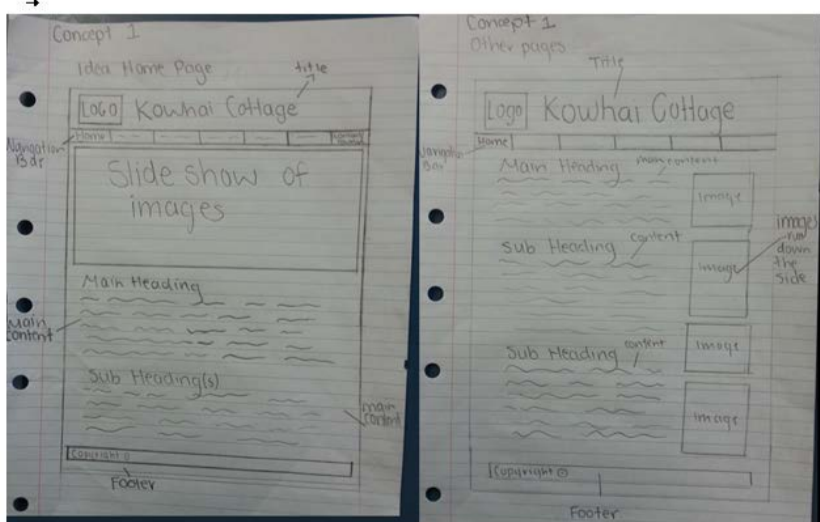 Concept 1
Idea Home Page
title
LOGO Kowhai Cottage
Home
Navgation
Bar
Slide show of
images
Main Heading
Main
content
Sub Heading(s)
main
content
Copyright ©
Footer
Concept 1
Other pages
Title
Logo Kowhai Cottage
Home
Bar
Main Heading
main content
image
Sub Heading
content
image
images
run
down
the
side
Sub Heading
content
image
image
Copyright ©
Footer